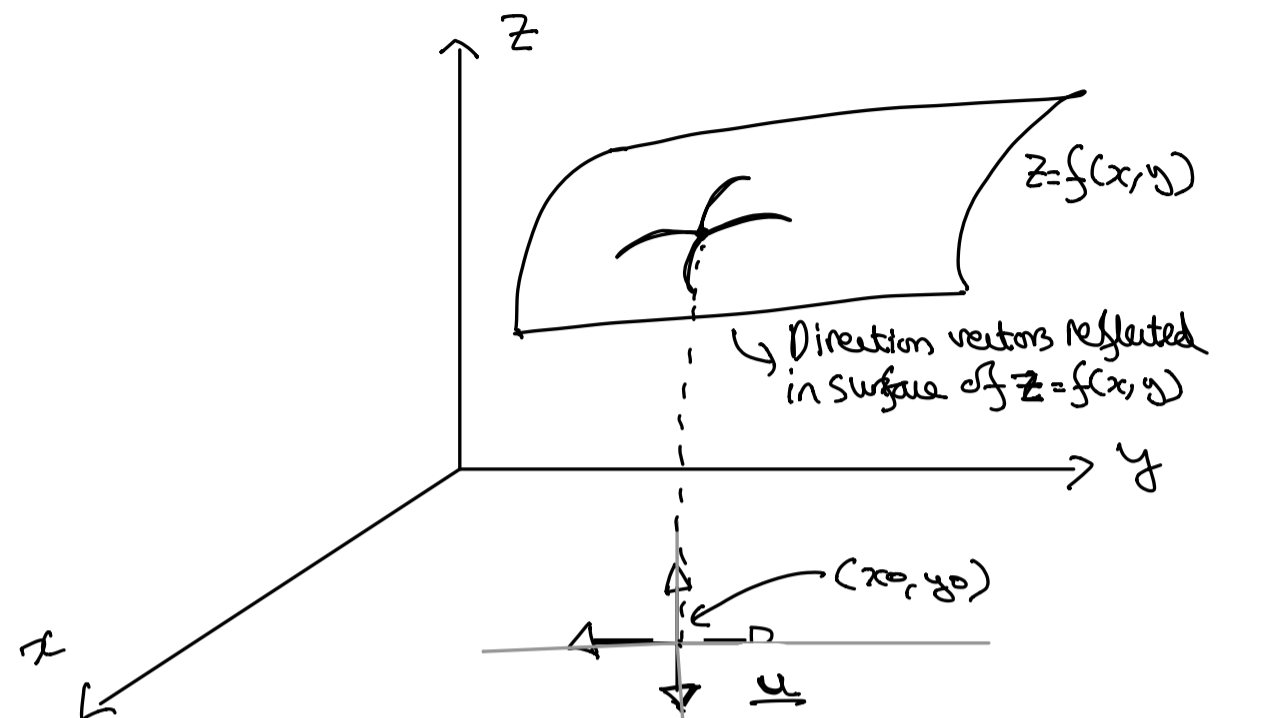 Z
Z=f(x,y)
Direction vectors reflected
in surface of Z=f(x,y)
y
(x0,y0)
x
u